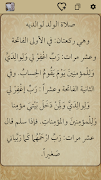 صلاة الولد لوالديه
وهي ركعتان: في الأولى الفاتحة
وعشر مرات: رَبِّ اغْفِرْ لِي وَلِوَالِدَيَّ
وَلِلْمُؤْمِنِينَ يَوْمَ يَقُومُ الْحِسَابُ. وفي
الثانية الفاتحة وعشر مرات: رَبِّ
اغْفِرْ لِي وَلِوَالِدَيَّ وَلِمَنْ دَخَلَ بَيْتِيَ
مُؤْمِنًا وَلِلْمُؤْمِنِينَ وَالْمُؤْمِنَاتِ. فإذا سلم قال
عشر مرات: رَبِّ ارْحَمْهُمَا كَمَا رَبَّيَانِي
صَغِيرًا.